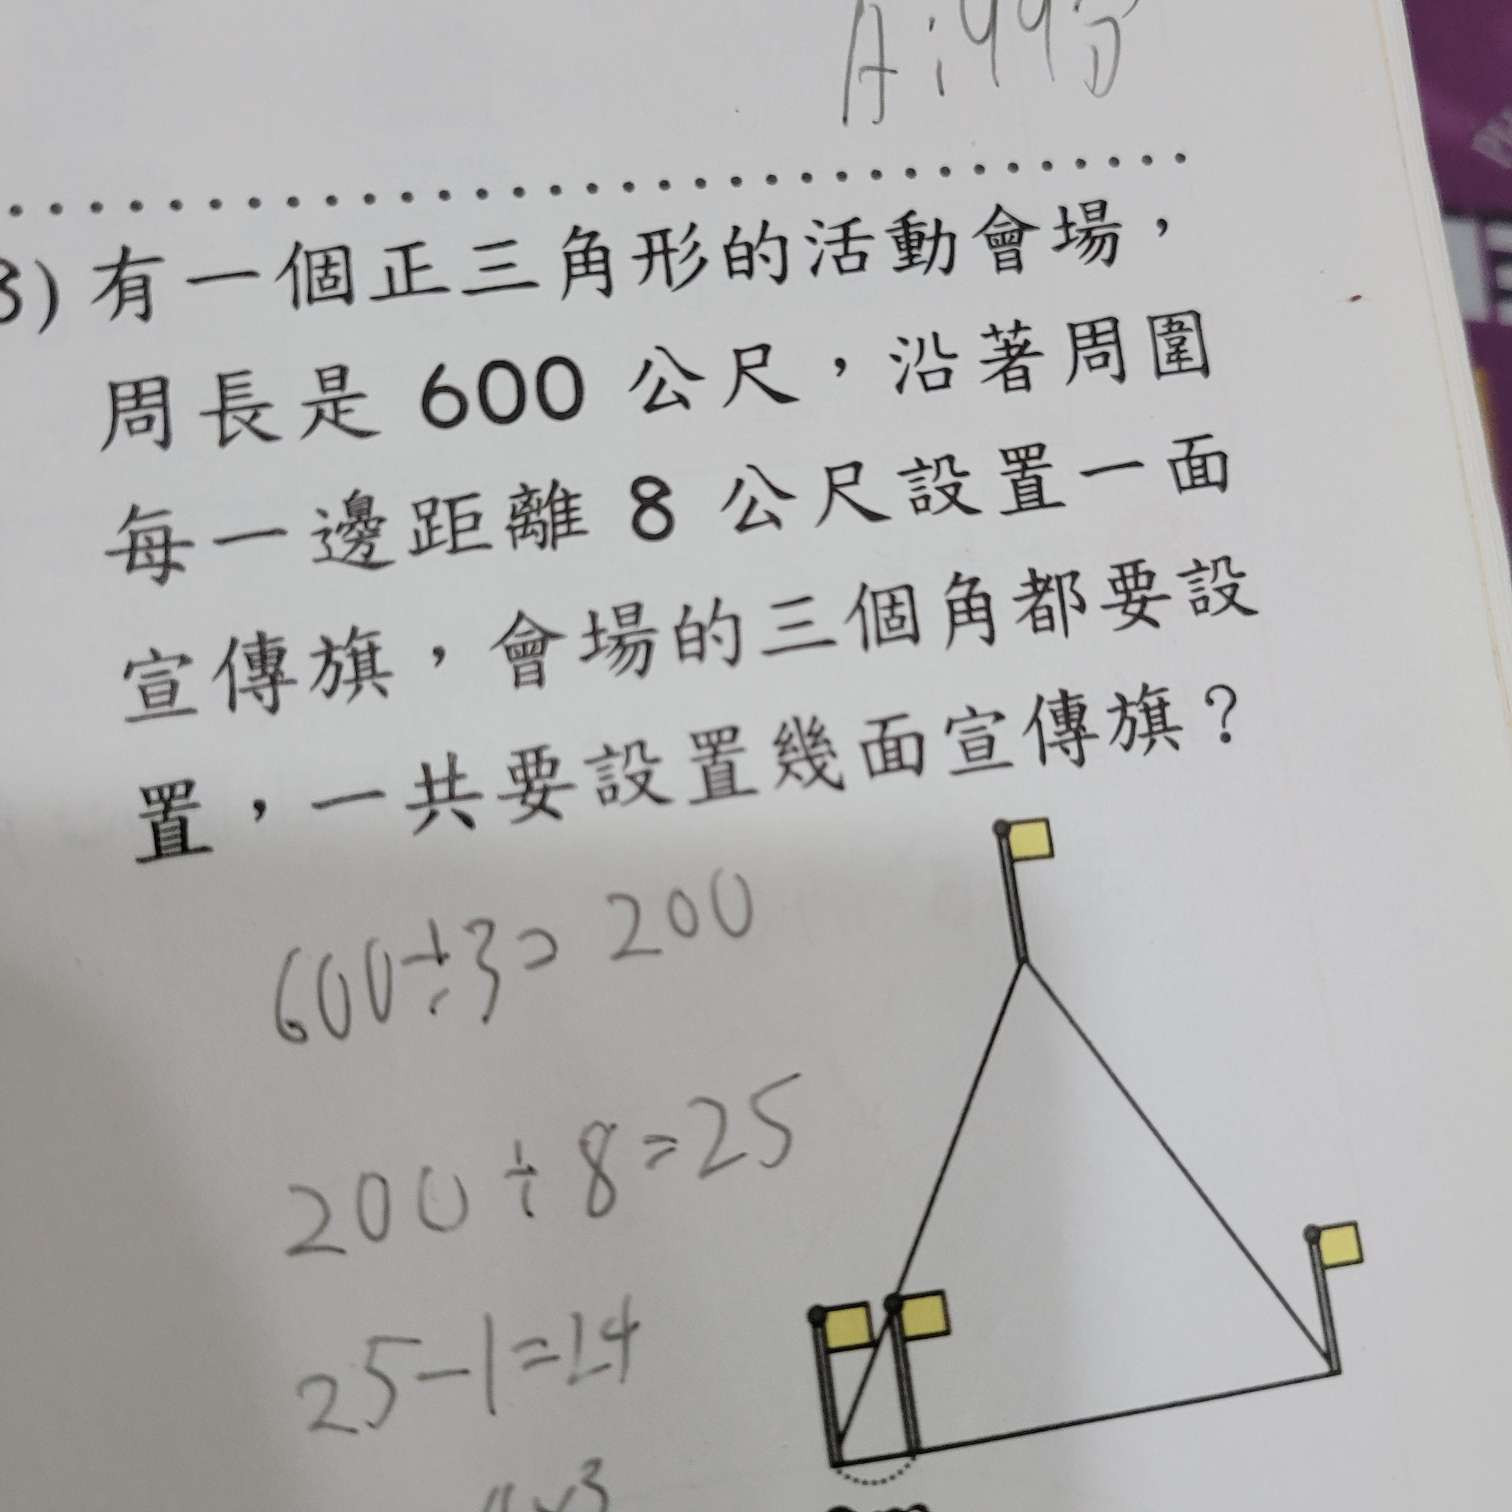 A:99分
3) 有一個正三角形的活動會場，
周長是 600 公尺，沿著周圍
每一邊距離 8 公尺設置一面
宣傳旗，會場的三個角都要設
置，一共要設置幾面宣傳旗？
600÷3=200
200÷8=25
25-1=24